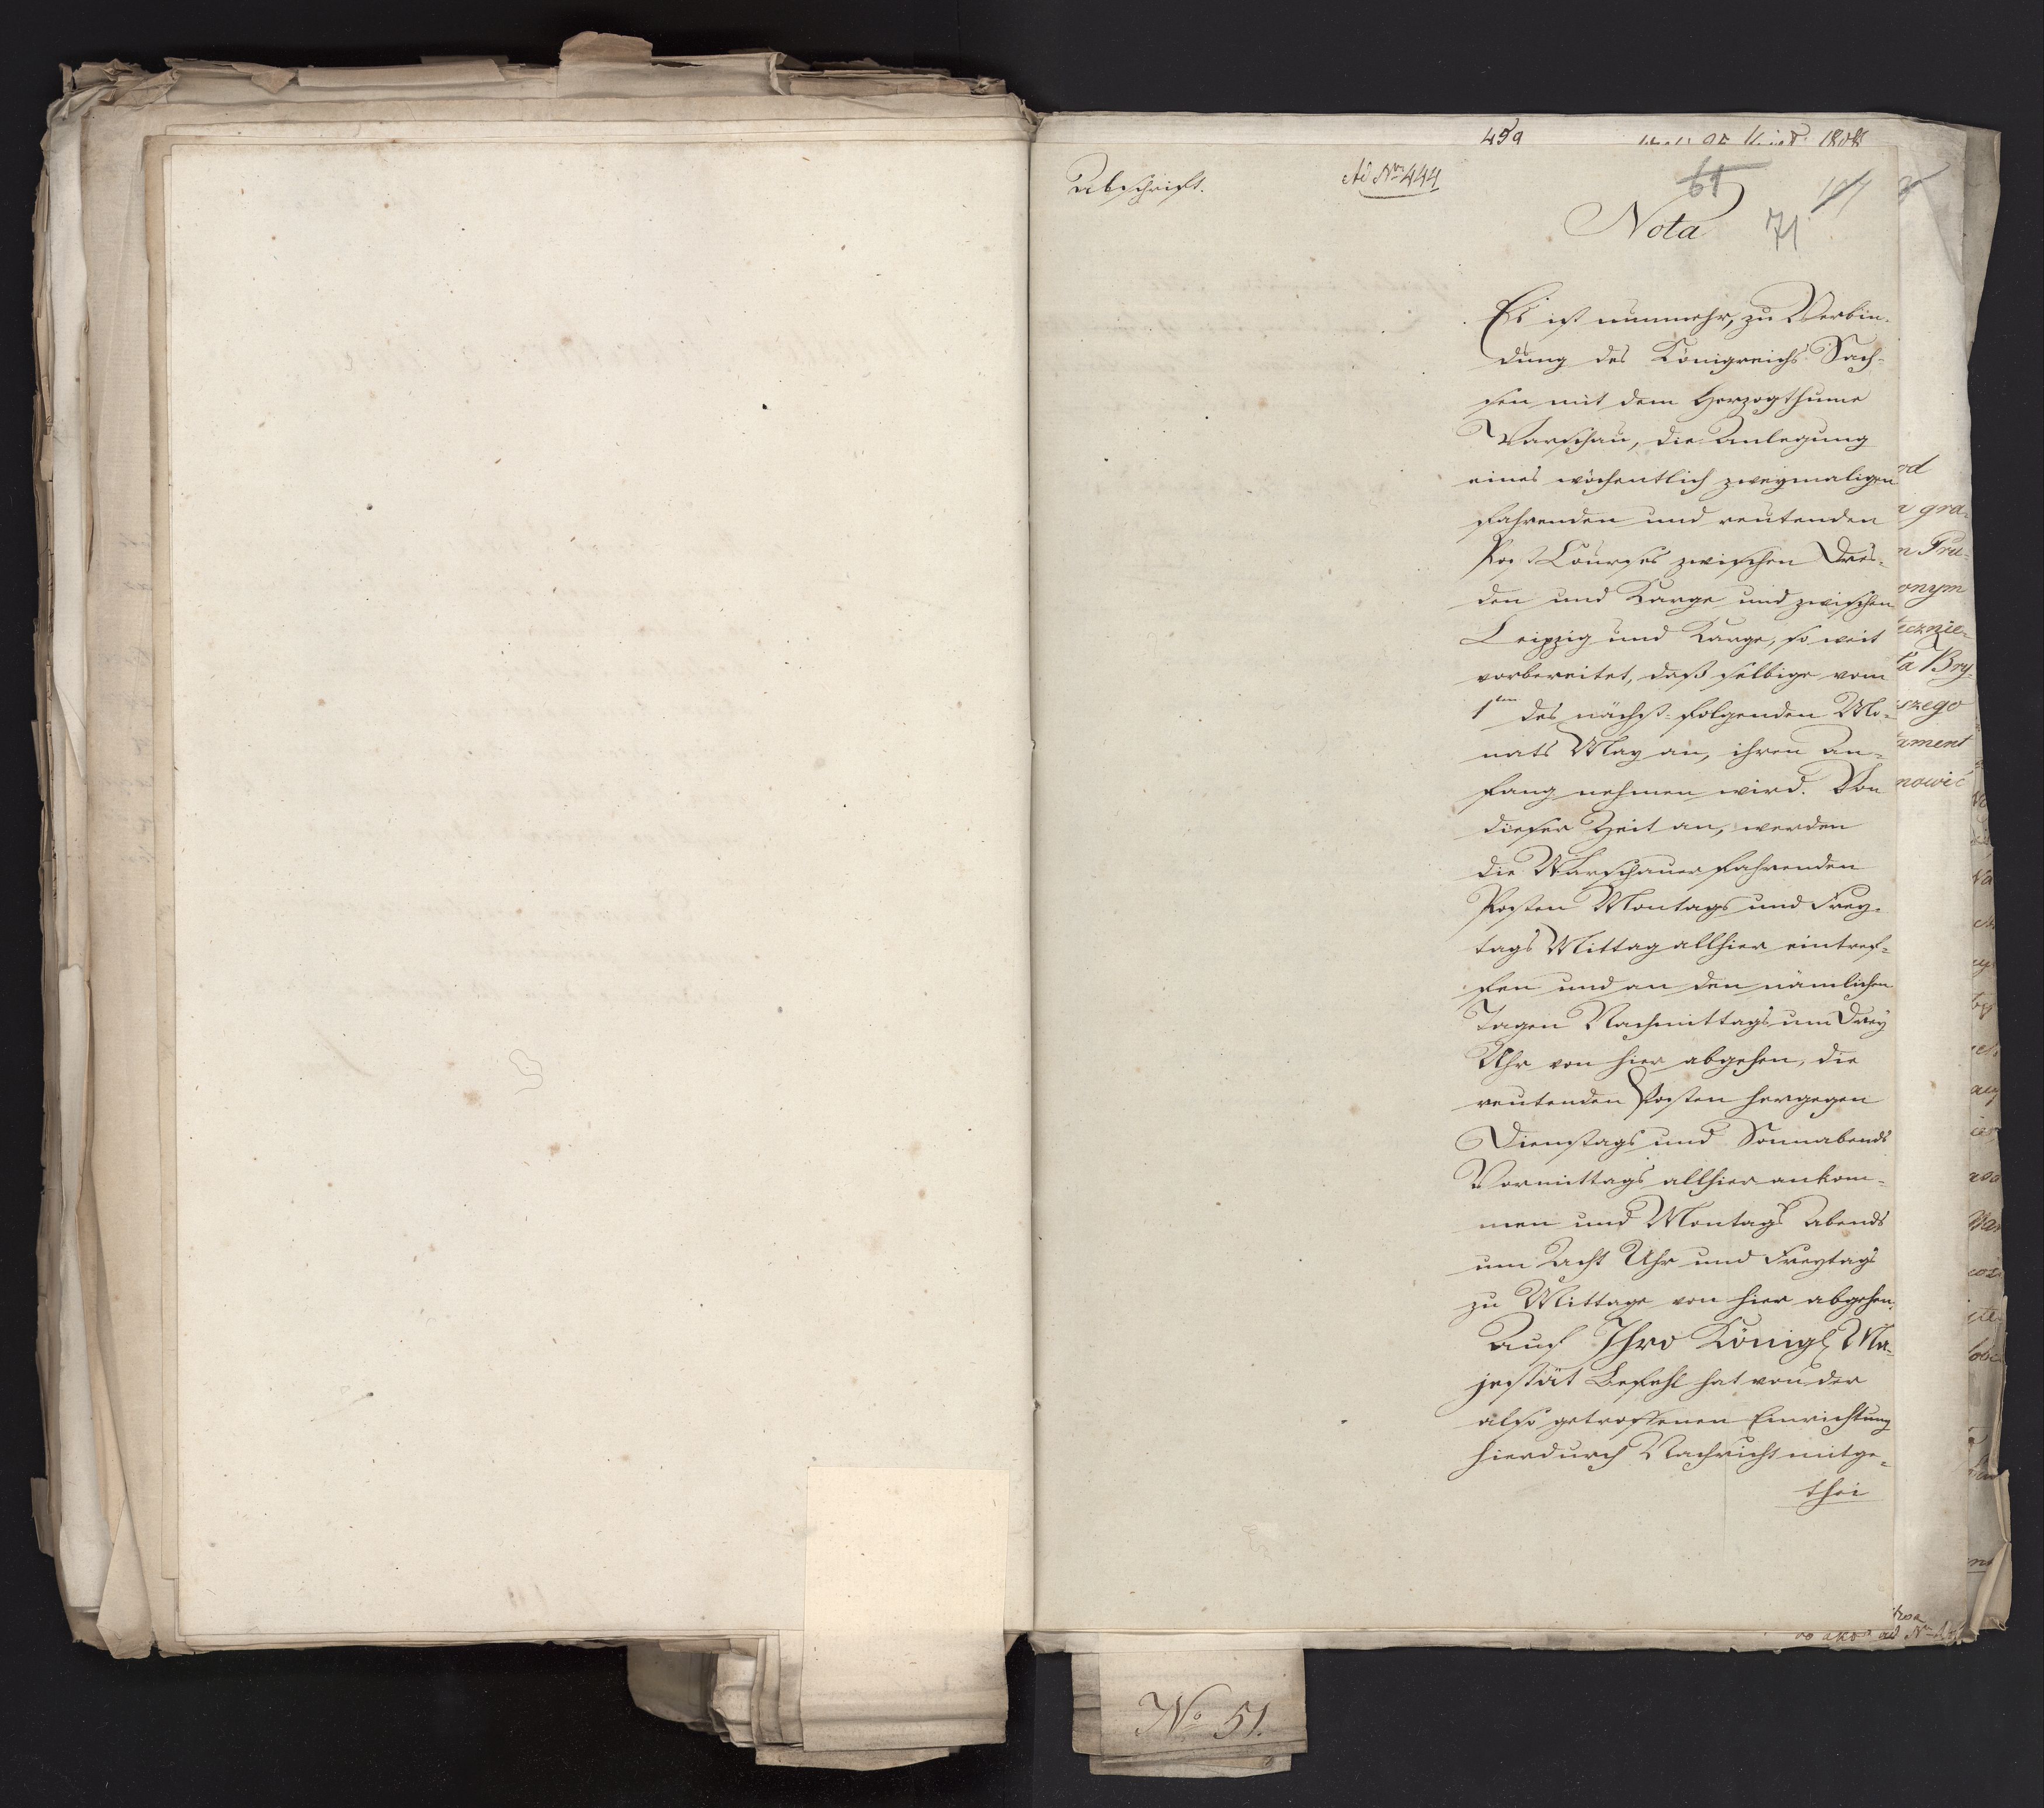 459
1808
Abschrift.
Ad Nro 444
61
71
Nota
Es ist nunmehr, zu Verbin-
dung des Königreichs Sach-
sen mit dem Herzogthume
Warschau, die Anlegung
eines wöchentlich zweymaligen
fahrenden und reutenden
Post Courses zwischen Dres-
den und Karge und zwischen
Leipzig und Karge, so weit
vorbereitet, daß selbige vom
1ten des nächst-folgenden Mo-
nats May an, ihren An-
fang nehmen wird. Von
dieser Zeit an, werden
die Warschauer fahrenden
Posten Montags und Frey-
tags Mittag allhier eintref-
fen und an den nämlichen
Tagen Nachmittags um Drey
Uhr von hier abgehen, die
reutenden Posten hergegen
Dienstags und Sonnabends
Vormittags allhier ankom-
men und Montags Abends
um Acht Uhr und Freytags
zu Mittage von hier abgehen.
Auf Ihro Königl. Ma-
jestät Befehl hat von der
also getroffenen Einrichtung
hierdurch Nachricht mitge-
thei
od
gra-
Pru-
onym
ecznie-
Bry-
szego
ament
nowić
No 51.